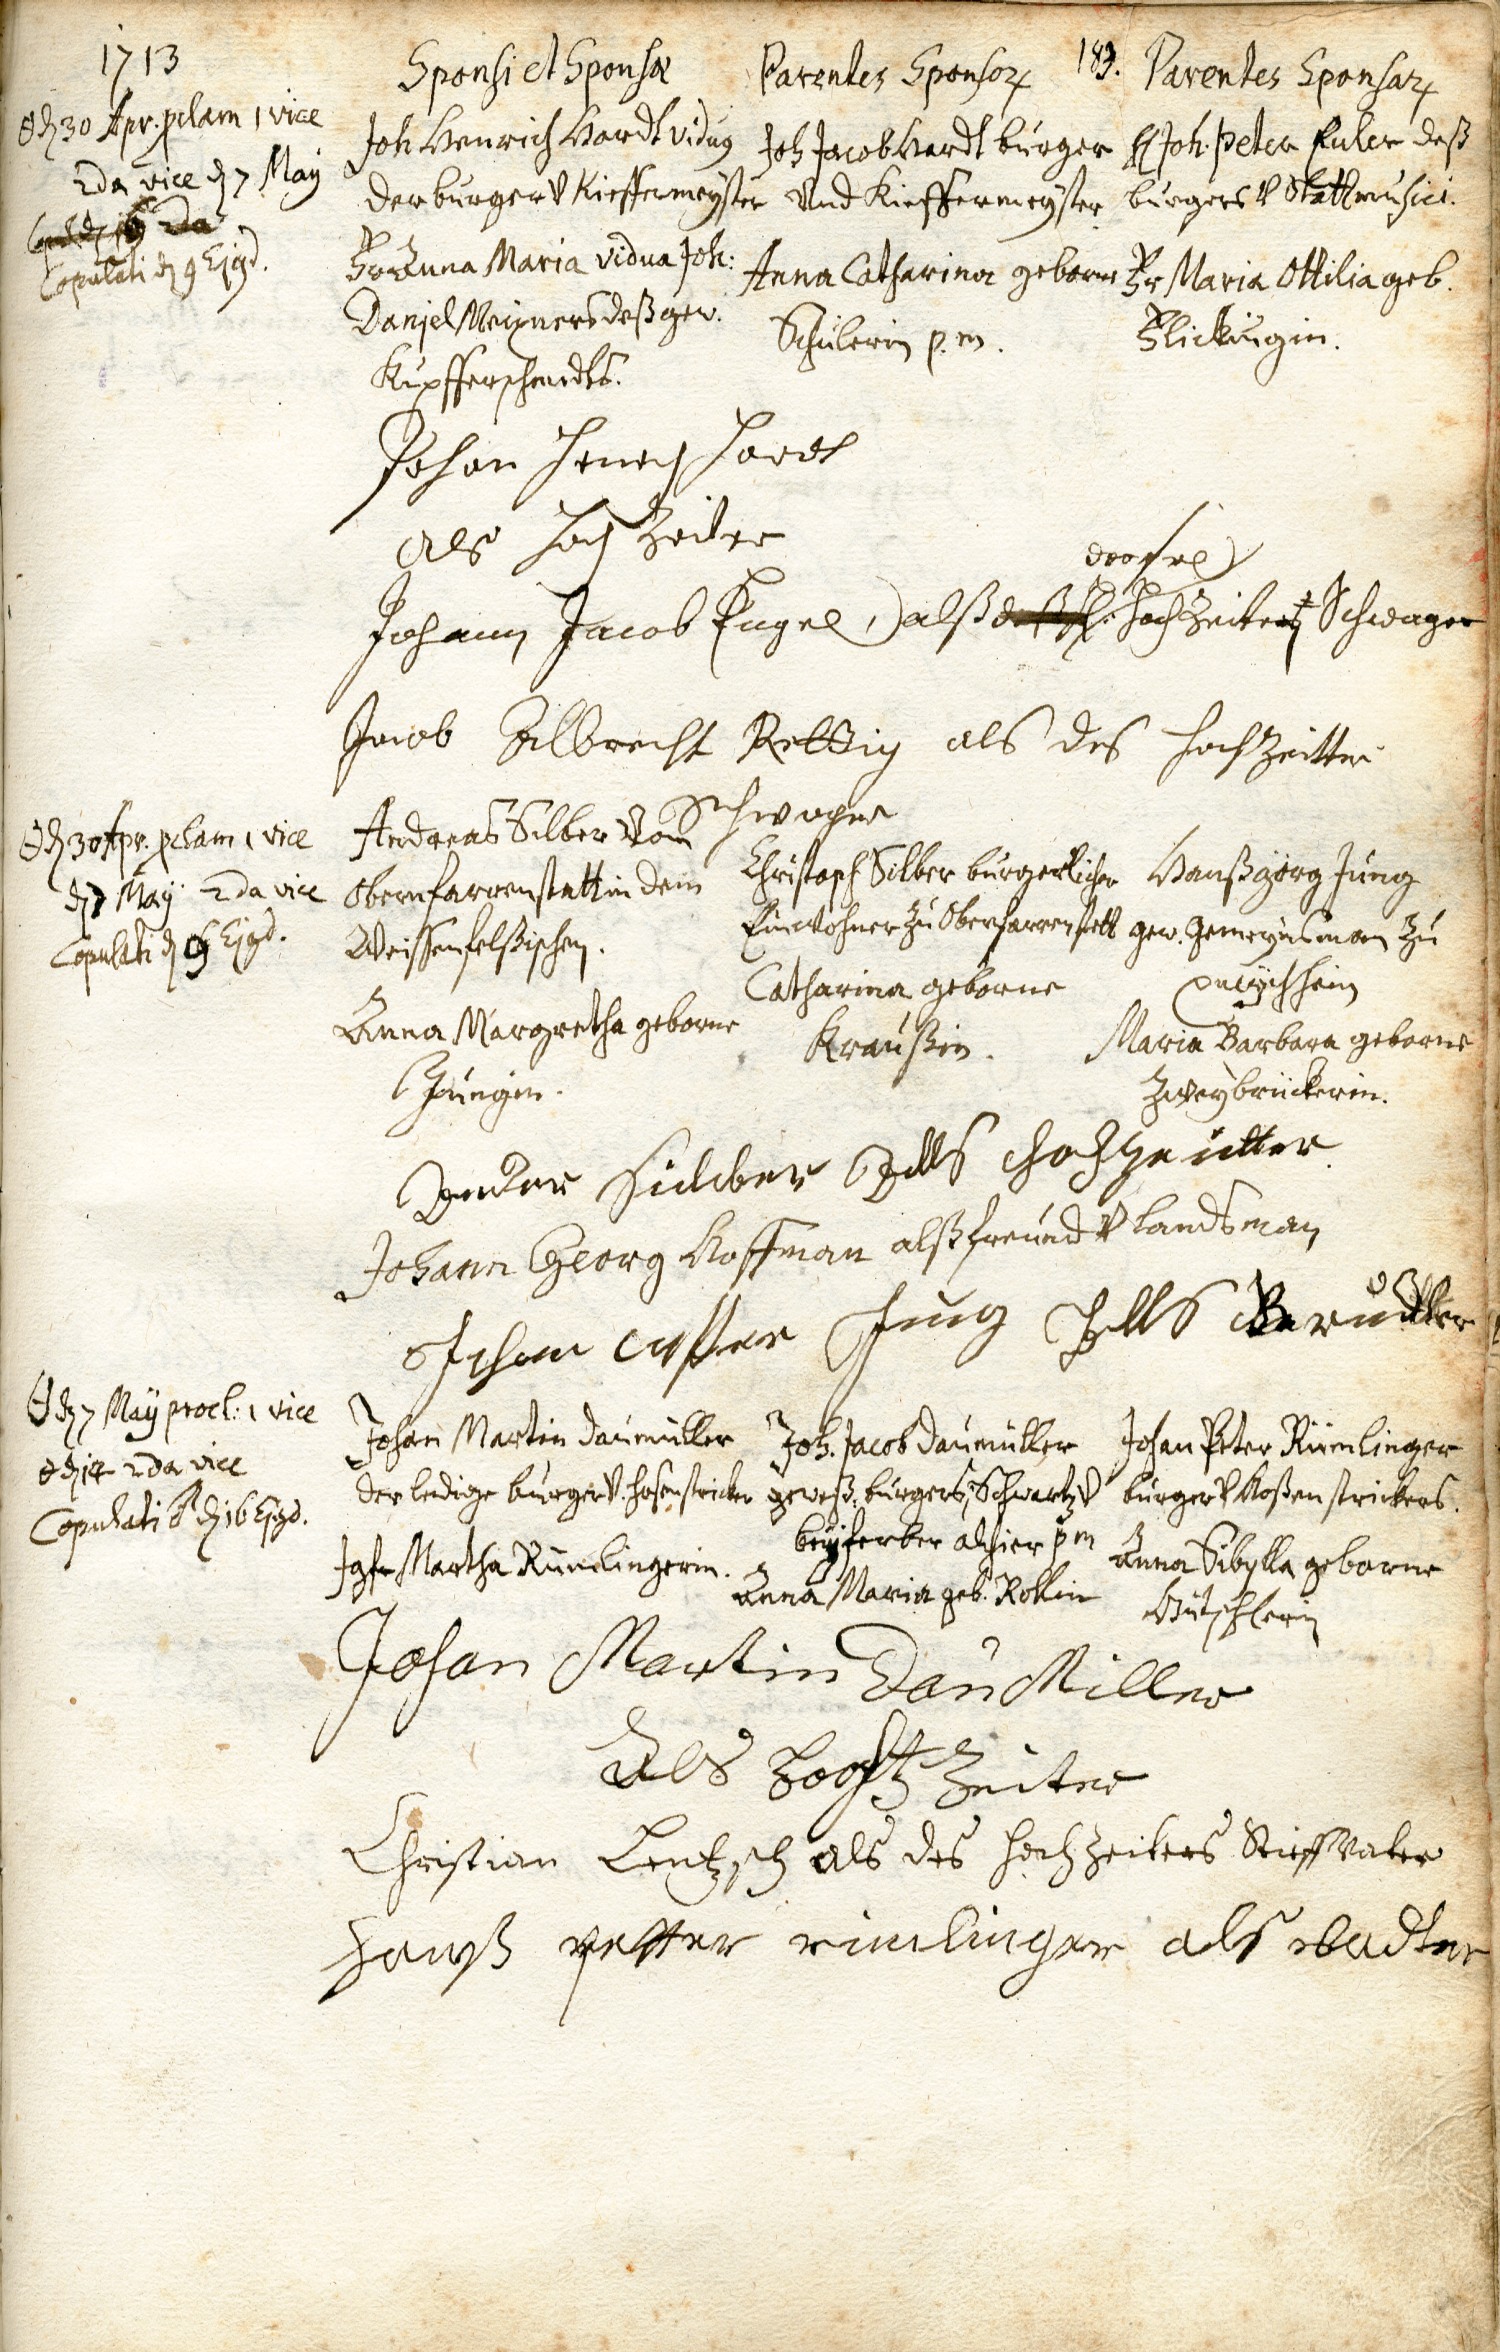 1713
Sponsi et Sponsæ
Parentes Sponsor
183.
Parentes Sponsar
30 Apr. pclam 1 vice
2da vice d 7 May
Copulati d 9 Ejsd.
Joh Henrich Hardt vidug
der burger v Kieffermeyster
Fr Anna Maria vidua Joh:
Danjel Meixners deß gew.
Kupfferschmidts.
Joh Jacob Hardt burger
und Kieffermeyster
Anna Catharina geborne
Schülerin p.m.
H Joh. Peter Euler deß
burgers v Stattmusici.
Fr Maria Ottilia geb.
Flickingin.
Johan Henrich Hardt
als Hoch Zeiter
deossel
Johann Jacob Engel, alß Hochzeiters Schwager
Jacob Albrecht Rettig als des Hochzeitter
Schwager
d 30 Apr. pclam 1 vice
d 7 May 2da vice
Copulati d 9 Ejsd.
Andreas Silber von
obernfarrenstatt in dem
Weissenfelsischen.
Anna Margretha geborne
Jungin.
Christoph Silber burgerlicher
Einwohner zu Oberfarrenstett
Catharina geborne
Kraußin.
Hanß görg Jung
gew. gemeynsman zu
Maria Barbara geborne
Zweybrückerin.
Ander Silber Alls Hochzeitter
Johann Georg Hoffman alß freund v landsman
Johan Casper Jung Alls Brudter
d 7 May procl: 1 vice
d 14 2da vice
Copulati d 16 Ejsd.
Johan Martin Daumüller
der ledige burger v. hosenstricker
Jgfr Martha Rümlingerin.
Joh. Jacob Daumüller
geweß. burgers, Schwartz v
beyferber alhier pm
Anna Maria geb. Rollin
Johan Peter Rümlinger
burger v Hoßenstrickers.
Anna Sibylla geborne
Johan Martin Dau Miller
Als Hochzeiter
Christian Lentzsch als des Hochzeiters Stieff Vater
Hanß petter rimlinger als Vadter